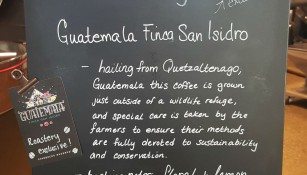 Guatemala Finca San Isidro
- hailing from Quetzaltenago,
Guatemala this coffee is grown
just outside of a wildlife refuge,
and special care is taken by the
farmers to ensure their methods
are fully devoted to sustainability
and conservation.
GUATEMALA
Roastery
exclusive!